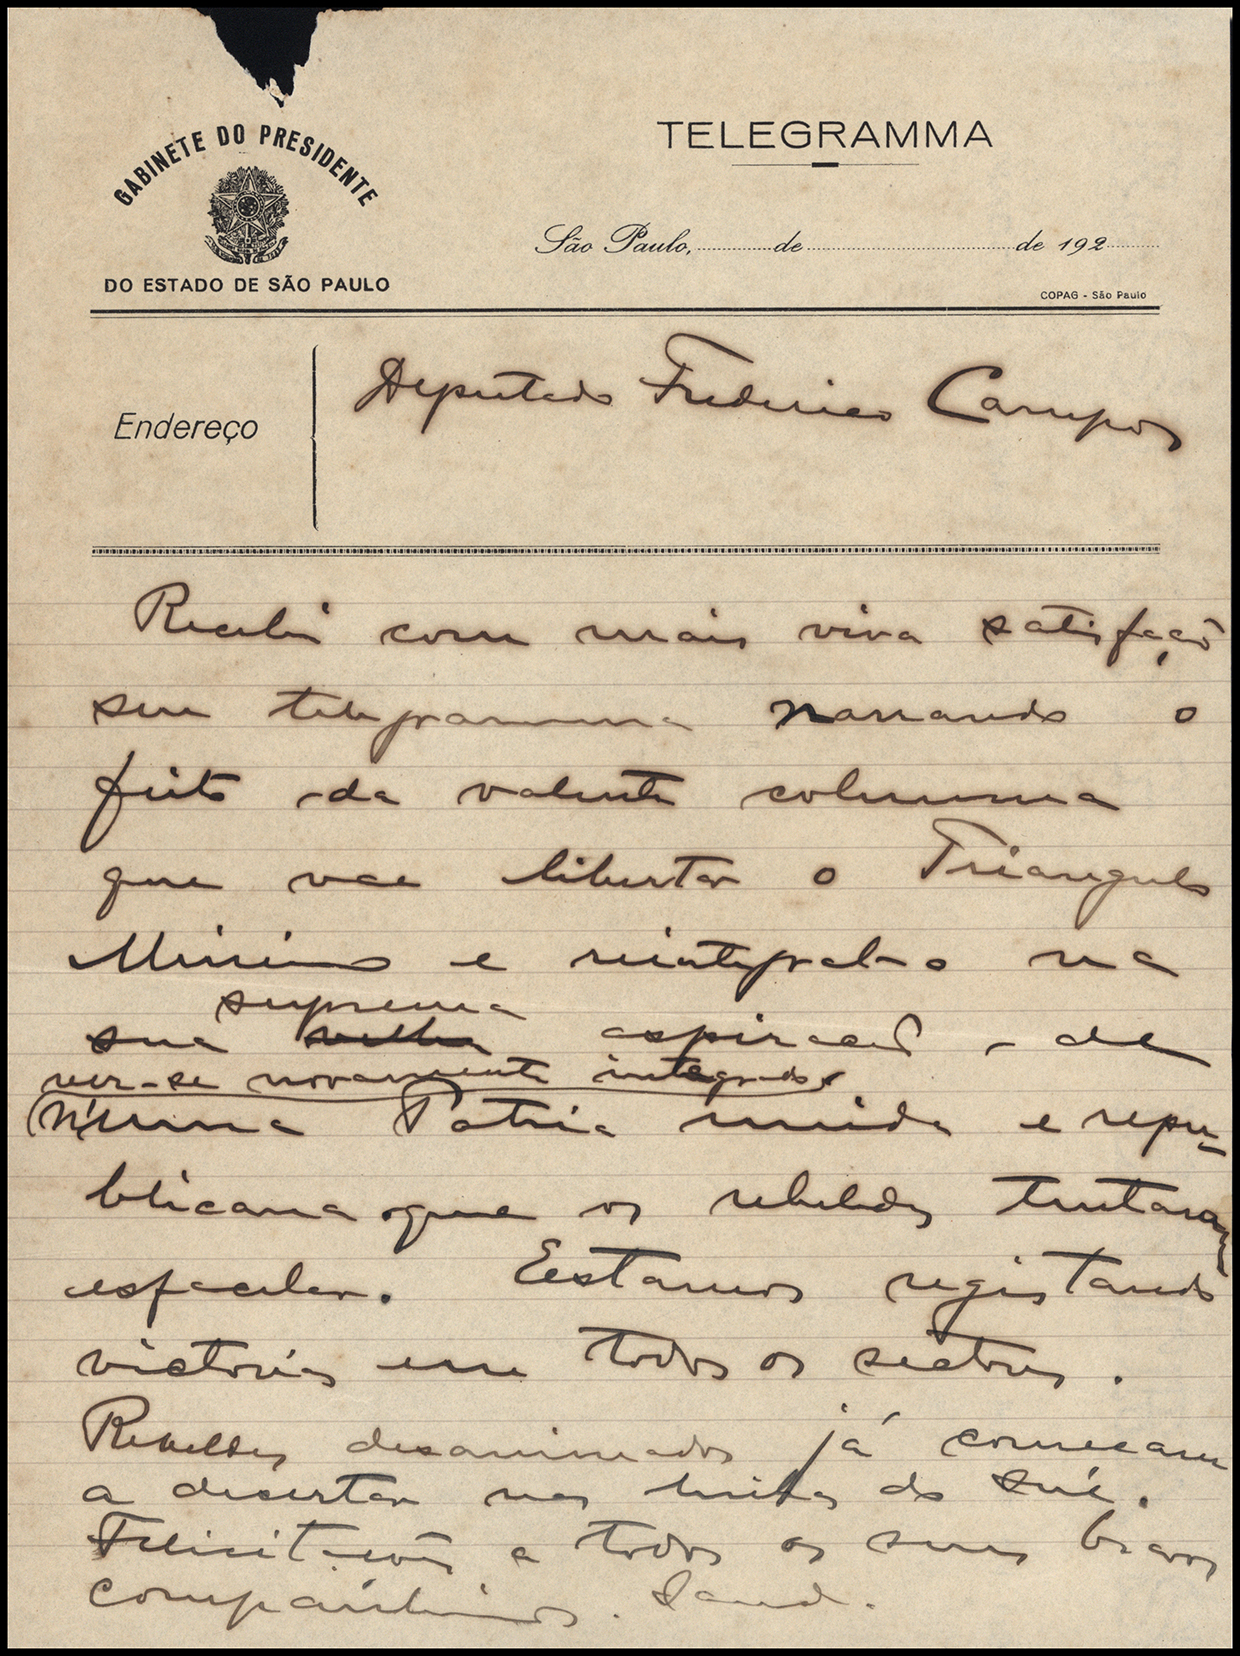 GABINETE DO PRESIDENTE
DO ESTADO DE SÃO PAULO
TELEGRAMMA
São Paulo, de de 192
COPAG - São Paulo
Endereço
Deputado Frederico Campos
Recebi com mais viva satisfação
seu telegramma narrando o
feito da valente columna
que vae libertar o Triangulo
Mineiro e reintegral-o na
suprema
sua velha aspiração de
ver-se novamente integrado
n'uma Patria unida e repu-
blicana que os rebeldes tentaram
esfacelar. Estamos registando
victorias em todos os sectores.
Rebeldes desanimados já comecam
a desertar nas linhas do Sul.
Felicitações a todos os seus bravos
companheiros. Saud.